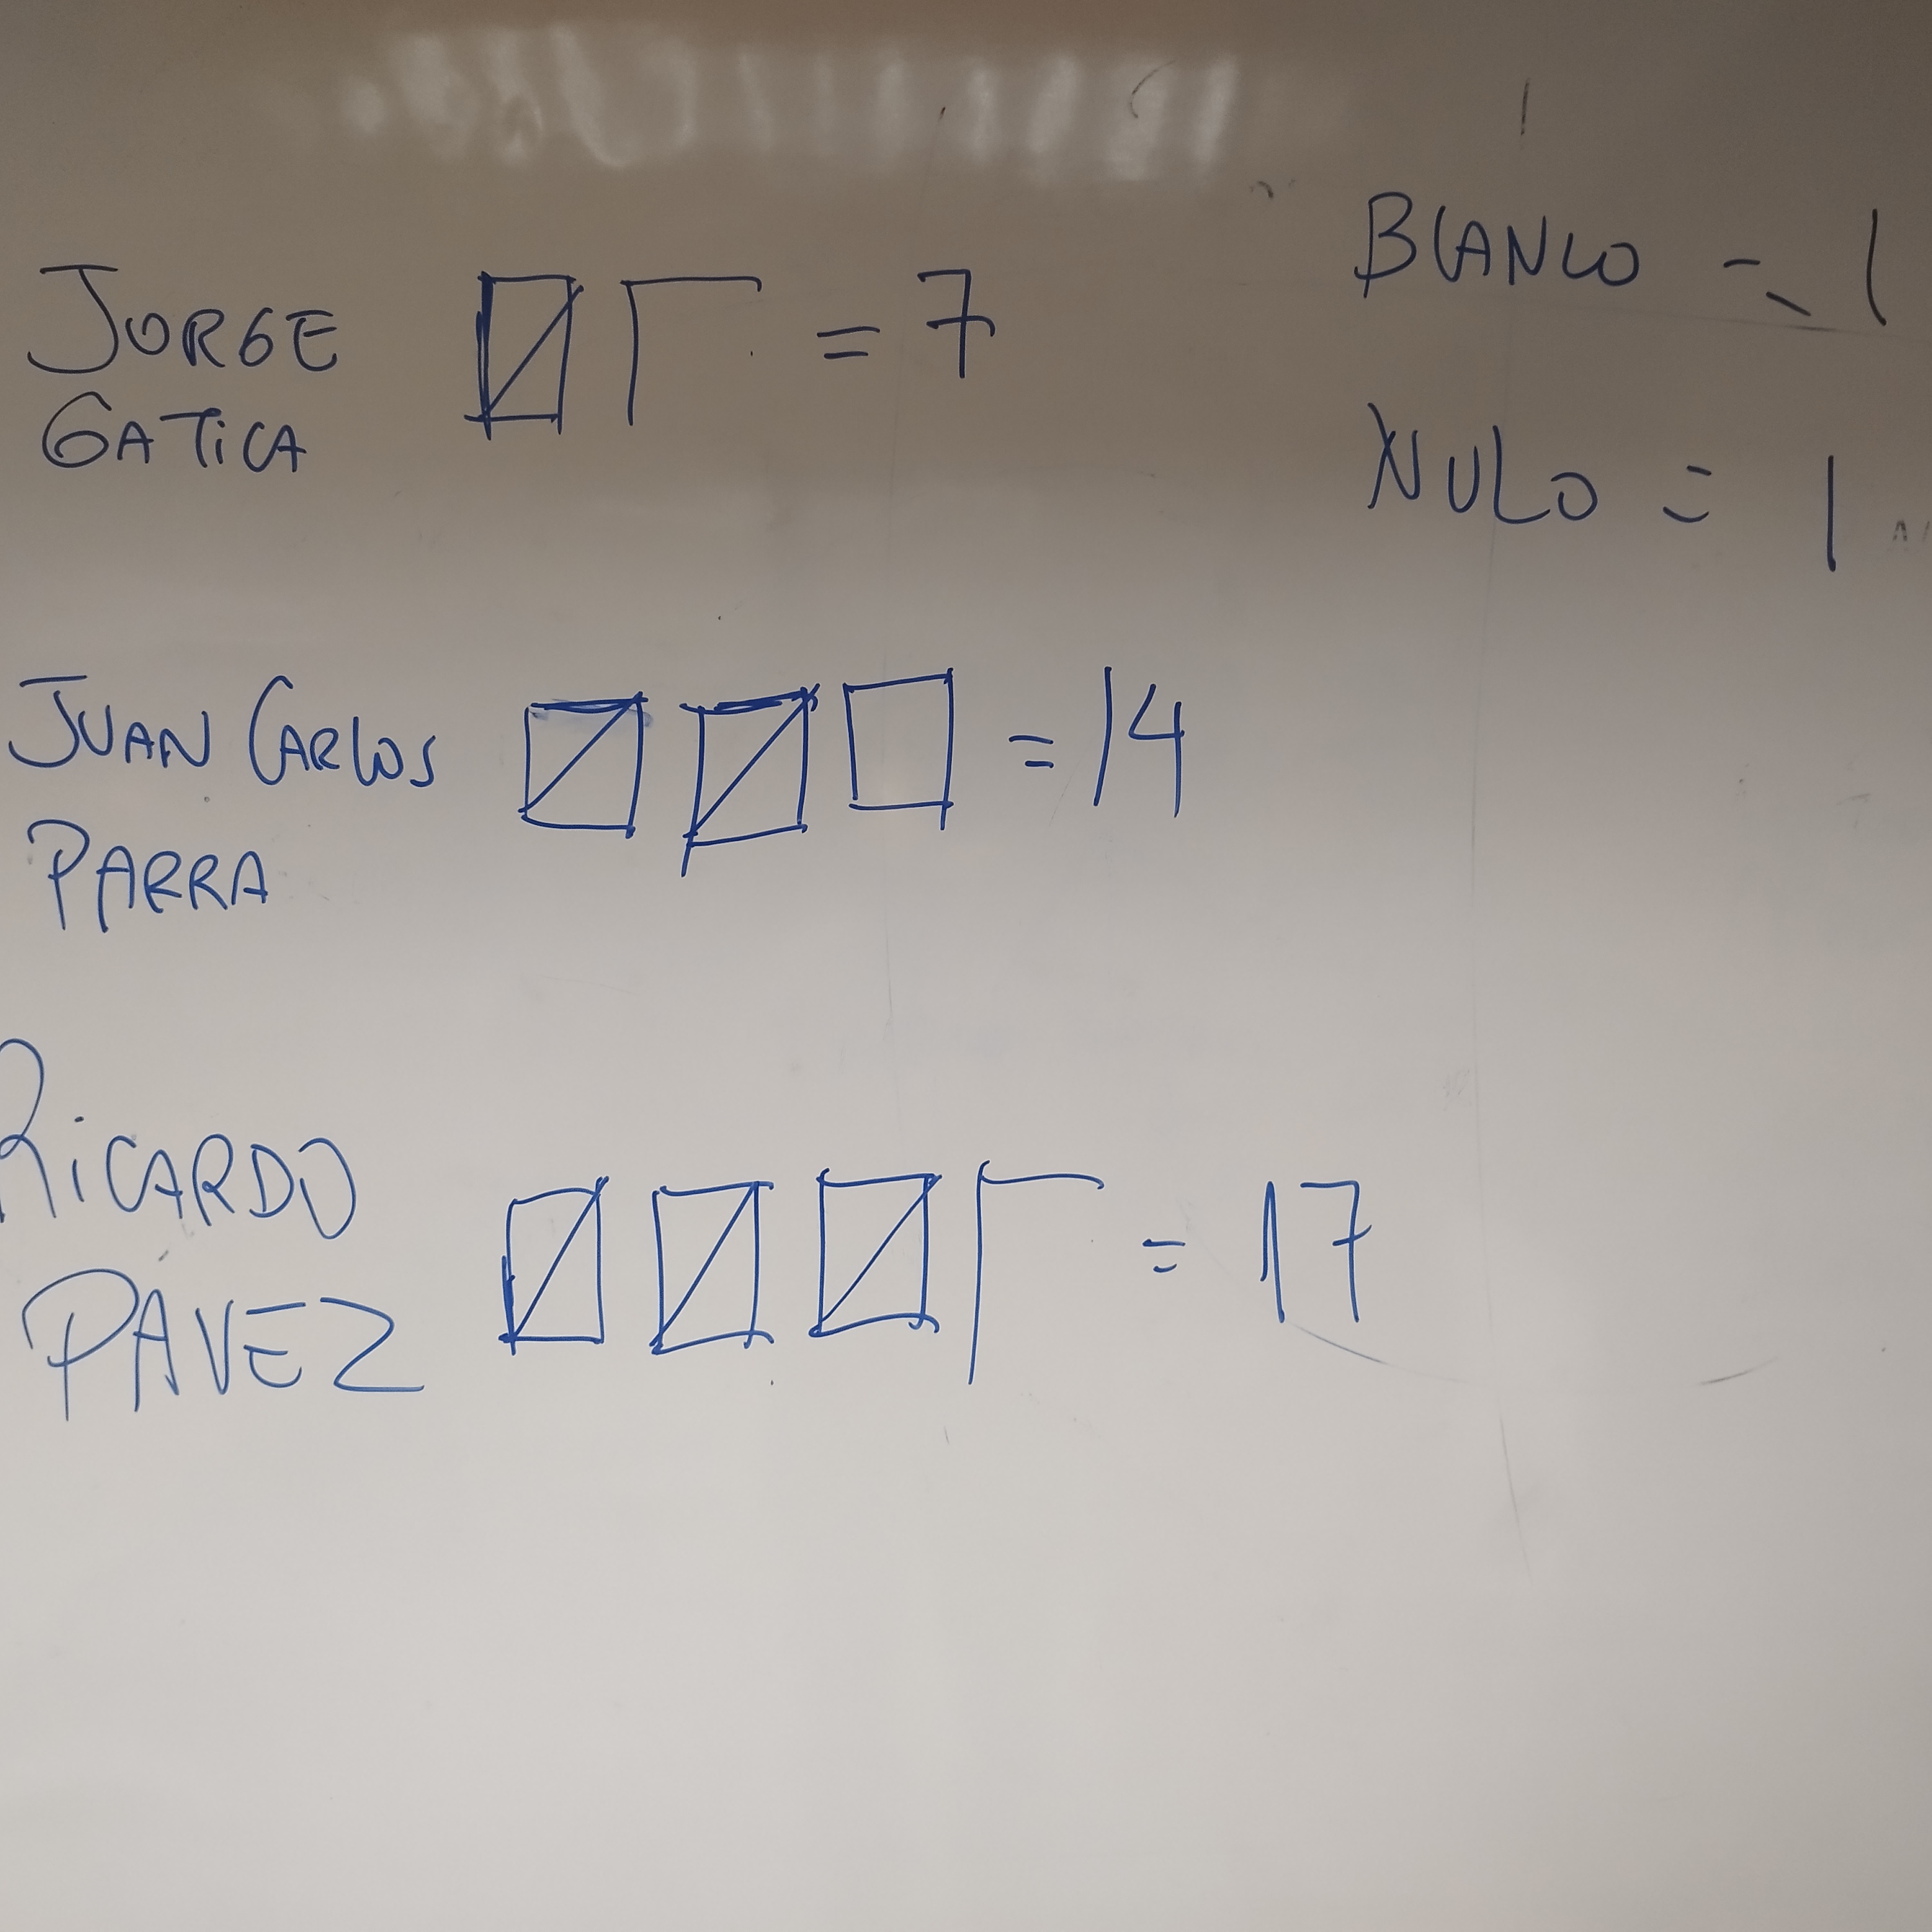 JORGE = 7
GATICA
BLANCO = 1
NULO = 1
JUAN CARLOS = 14
PARRA
RICARDO
PAVEZ = 17